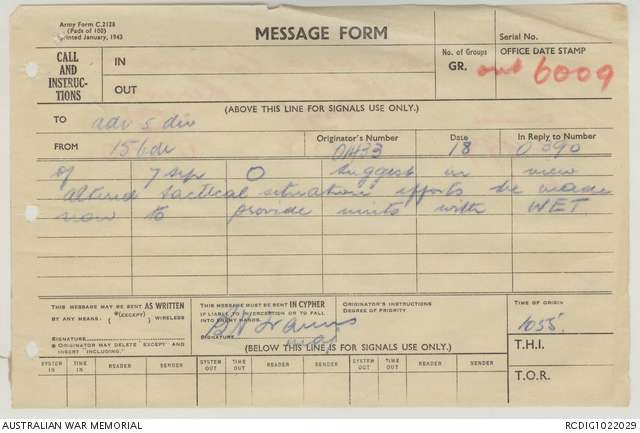 Army Form C.2128
(Pads of 100)
Printed January, 1943
MESSAGE FORM
Serial No.
CALL AND INSTRUC-TIONS
IN
OUT
No. of Groups
GR.
OFFICE DATE STAMP
out 6009
(ABOVE THIS LINE FOR SIGNALS USE ONLY.)
TO adv 5 div
FROM 15 bde
Originator's Number OH33
Date 18
In Reply to Number O390
of 7 Sep O suggest in view
altered tactical situation efforts be made
now to provide units with WET.
THIS MESSAGE MAY BE SENT AS WRITTEN
BY ANY MEANS. *(EXCEPT) WIRELESS
SIGNATURE
* ORIGINATOR MAY DELETE "EXCEPT" AND
INSERT "INCLUDING."
THIS MESSAGE MUST BE SENT IN CYPHER
IF LIABLE TO INTERCEPTION OR TO FALL
INTO ENEMY HANDS.
SIGNATURE
Maj
ORIGINATOR'S INSTRUCTIONS
DEGREE OF PRIORITY
TIME OF ORIGIN
1055.
(BELOW THIS LINE IS FOR SIGNALS USE ONLY.)
T.H.I.
SYSTEM IN TIME IN READER SENDER SYSTEM OUT TIME OUT READER SENDER SYSTEM OUT TIME OUT READER SENDER
T.O.R.
AUSTRALIAN WAR MEMORIAL
RCDIG1022029